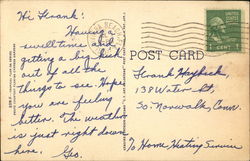 Hi Frank:
Having a
swell time and
getting a big kick
out of all the
things to see. Hope
you are feeling
better. The weather
is just right down
here.
Geo.
POST CARD
Frank Hayback,
138 Water St,
So. Norwalk, Conn.
To Home Heating Service
1 CENT 1